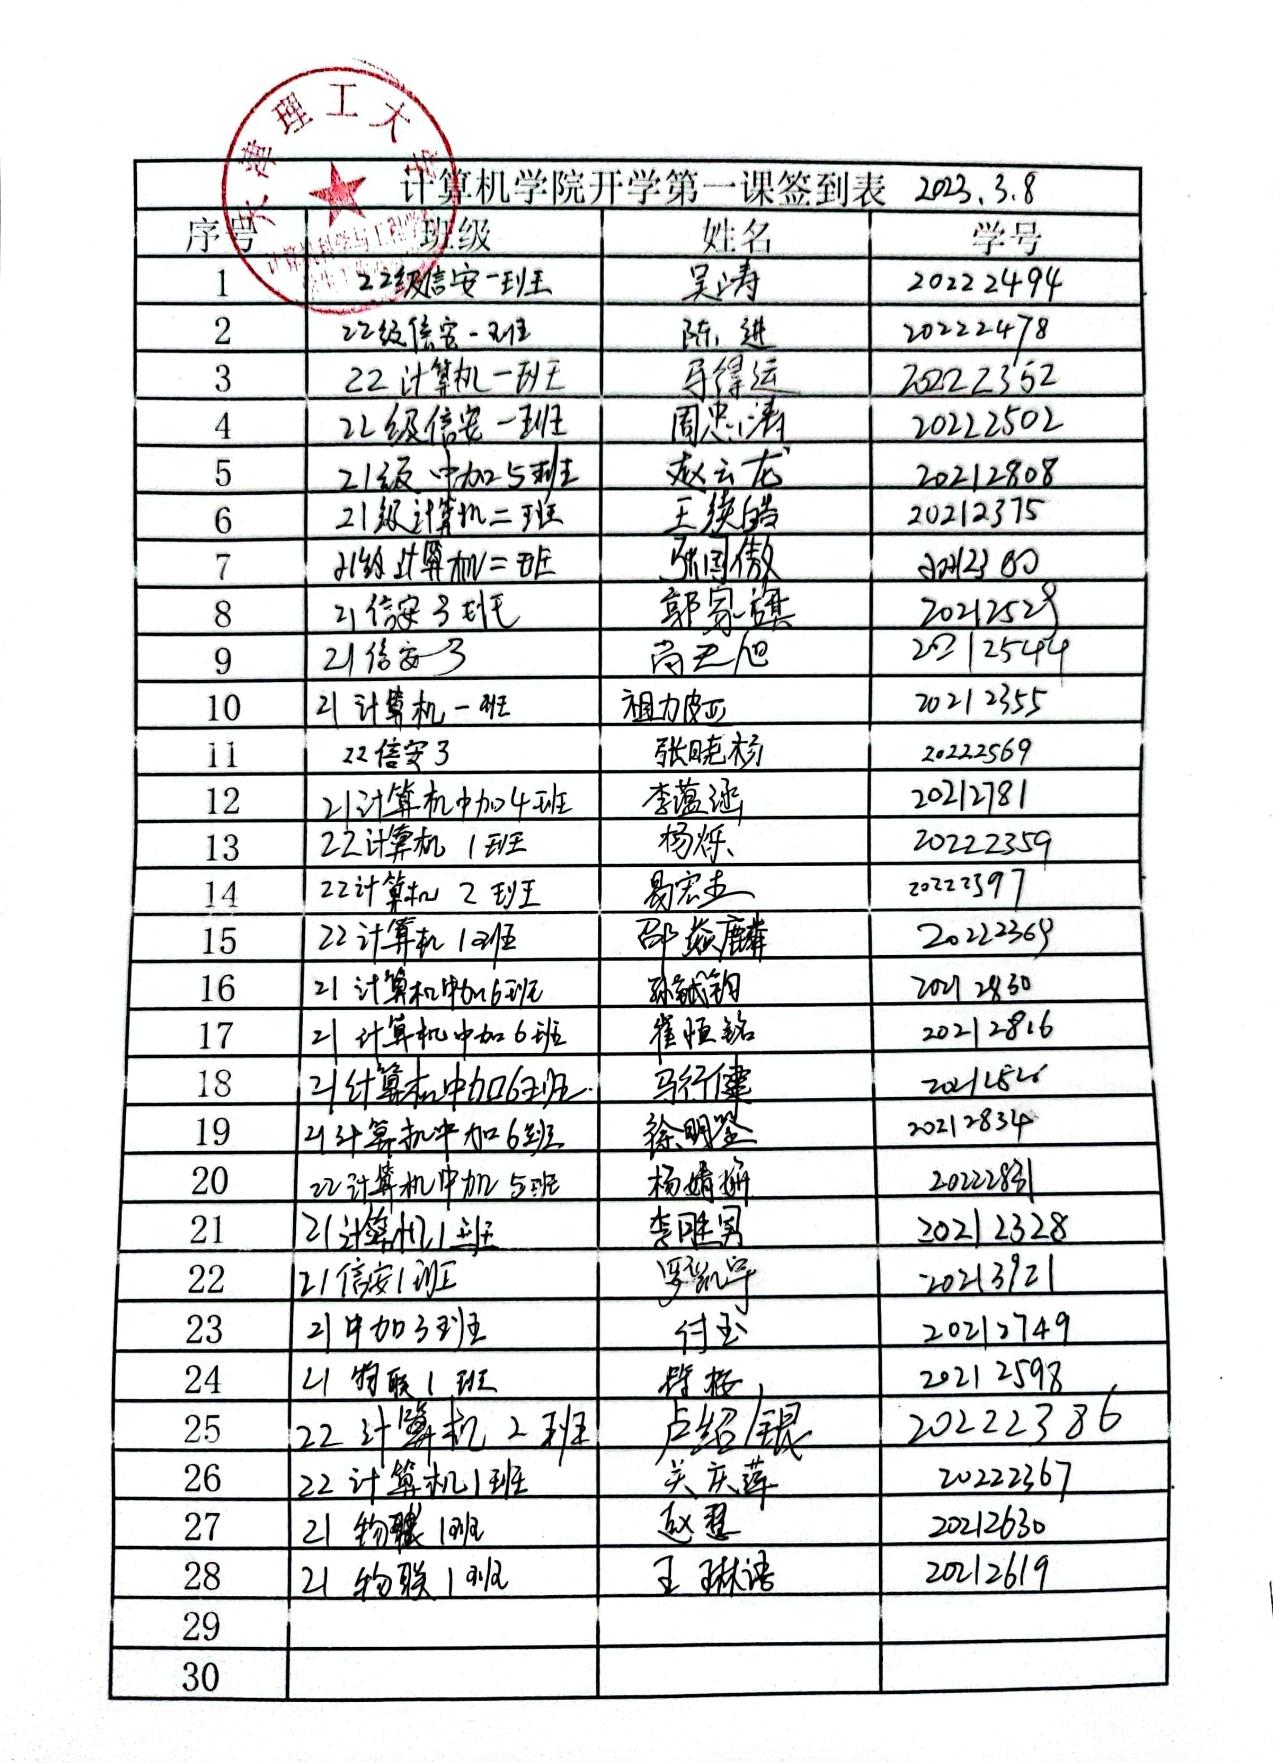 天津理工大学
计算机科学与工程学院
计算机学院开学第一课签到表 2023.3.8
序号 班级 姓名 学号
1 22级信安一班 吴涛 20222494
2 22级信安一班 陈进 20222478
3 22计算机一班 马得运 20222352
4 22级信安一班 周忠涛 20222502
5 21级中加5班 赵云龙 20212808
6 21级计算机二班 王续皓 20212375
7 21级计算机二班 张国傲
8 21信安3班 郭家旗 20212529
9 21信安3 尚天旭 20212544
10 21计算机一班 祖力皮亚 20212355
11 22信安3 张晓杨 20222569
12 21计算机中加4班 李蕴涵 20212781
13 22计算机1班 杨烁 20222359
14 22计算机2班 易宏杰 20222397
15 22计算机1班 邵焱麟 20222369
16 21计算机中加6班 孙毓钧 20212830
17 21计算机中加6班 崔恒铭 20212816
18 21计算机中加6班 马行健 20212826
19 21计算机中加6班 徐明鉴 20212834
20 22计算机中加5班 杨婧妍 20222831
21 21计算机1班 李胜男 20212328
22 21信安1班 罗凯军 20213921
23 21中加3班 付玉 20212749
24 21物联1班 20212598
25 22计算机2班 卢绍银 20222386
26 22计算机1班 关庆莲 20222367
27 21物联1班 赵慧 20212630
28 21物联1班 王琳语 20212619
29
30